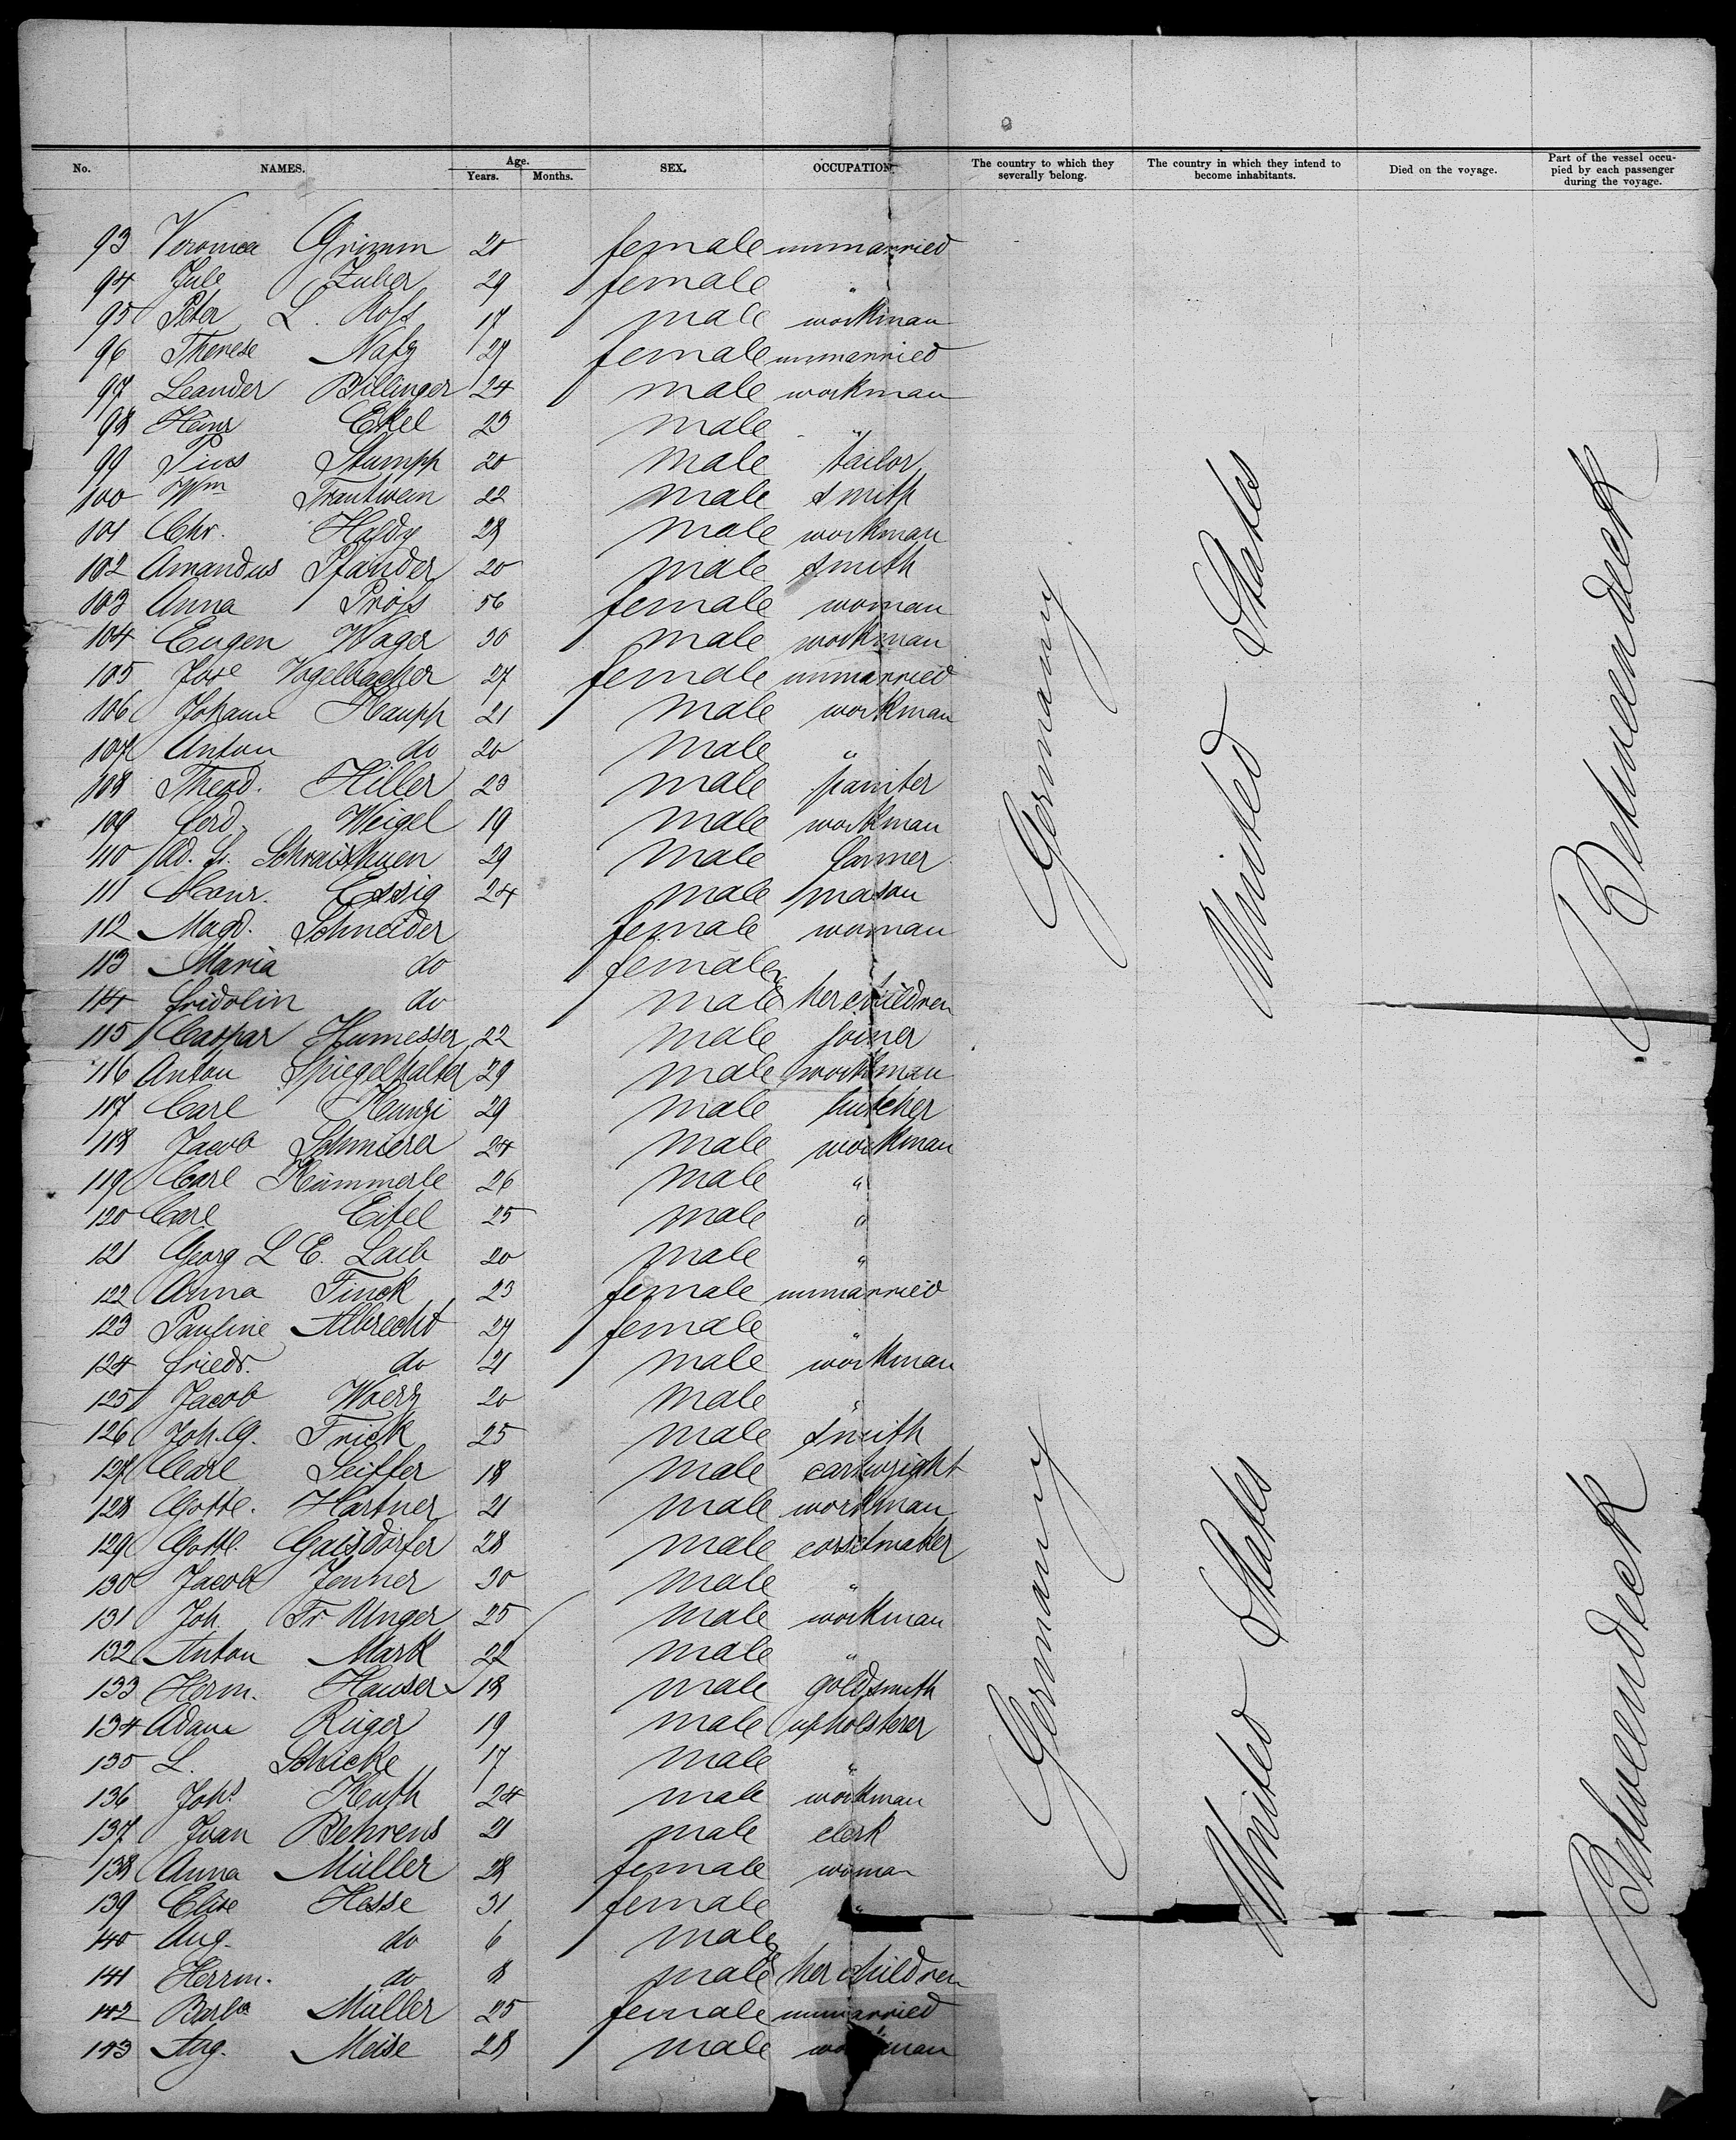 No. NAMES. Age. Years. Months. SEX. OCCUPATION. The country to which they severally belong. The country in which they intend to become inhabitants. Died on the voyage. Part of the vessel occupied by each passenger during the voyage.
93 Veronica Grimm 20 female unmarried
94 Jule Zuber 29 female "
95 Peter L. Rofs 17 male workman
96 Therese Nafz 27 female unmarried
97 Leander Billinger 24 male workman
98 Heinr Ekel 23 male "
99 Pius Stumpp 20 male tailor
100 Wm Trautwein 22 male smith
101 Chr. Haldy 28 male workman
102 Amandus Pfander 20 male smith
103 Anna Pröfs 56 female woman
104 Eugen Wager 30 male workman
105 Jose Vogelbacher 27 female unmarried
106 Johann Haupp 21 male workman
107 Anton do 20 male "
108 Theod. Hiller 23 male painter
109 Ferd. Weigel 19 male workman
110 Ad. Fr. 29 male farmer
111 Conr. Essig 24 male mason
112 Magd. Schneider female woman
113 Maria do female
114 Fridolin do male her children
115 Caspar Humesser 22 male joiner
116 Anton Spiegelhalter 29 male workman
117 Carl Kunzi 29 male butcher
118 Jacob Schmierer 24 male workman
119 Carl Kümmerle 26 male "
120 Carl Eitel 25 male "
121 Georg L E. Laib 20 male "
122 Anna Finck 23 female unmarried
123 Pauline Albrecht 27 female "
124 Friedr. do 21 male workman
125 Jacob Woerz 20 male "
126 Joh. G. Frick 25 male smith
127 Carl Seiffer 18 male cartwright
128 Gottl. Hartner 21 male workman
129 Gottl. Gaisdörfer 28 male corsetmaker
130 Jacob Jenner 30 male "
131 Joh. Fr Unger 25 male workman
132 Anton Mark 22 male "
133 Herm. Hauser 18 male goldsmith
134 Adam Rüger 19 male upholsterer
135 L. Schicke 17 male "
136 Johs Huth 24 male workman
137 Ivan Behrens 21 male clerk
138 Anna Müller 28 female woman
139 Elise Hesse 31 female "
140 Aug. do 6 male
141 Herrm. do 8 male her children
142 Barba Müller 25 female unmarried
143 Aug. Meise 28 male workman
Germany United States Betweendeck
Germany United States Betweendeck